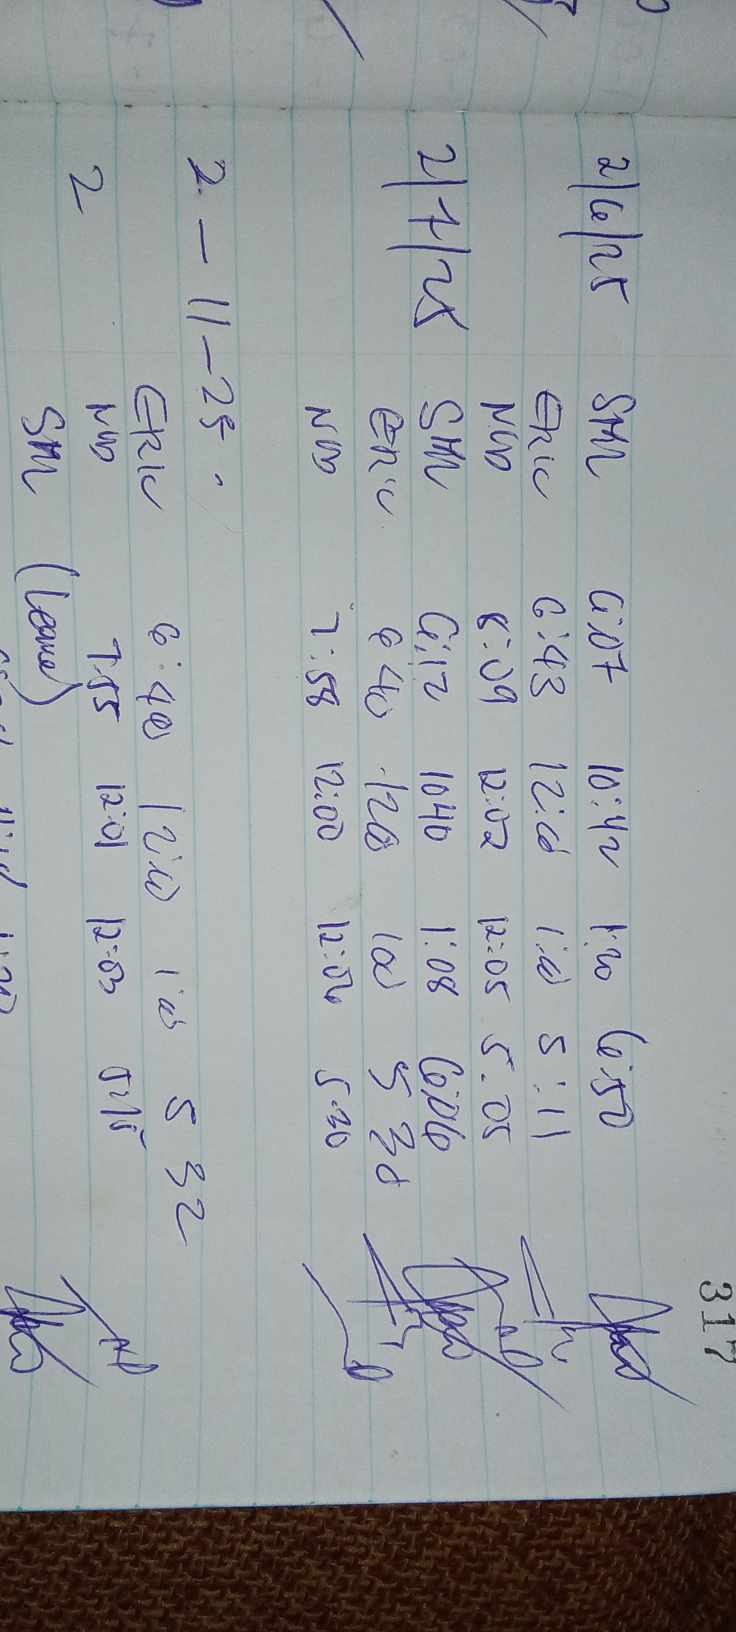 317
2/6/25 SM 6:07 10:42 1:20 6:50
ERIC 6:43 12:00 1:00 5:11
NWD 8:09 12:02 12:05 5:05
2/7/25 SM 6:12 1040 1:08 6:06
ERIC 6 40 1200 100 5 30
NWD 7:58 12:00 12:06 5:30
2 - 11 - 25.
ERIC 6:40 12:00 1:00 5 32
2 NWD 7:55 12:01 12:03
SM (Leave)